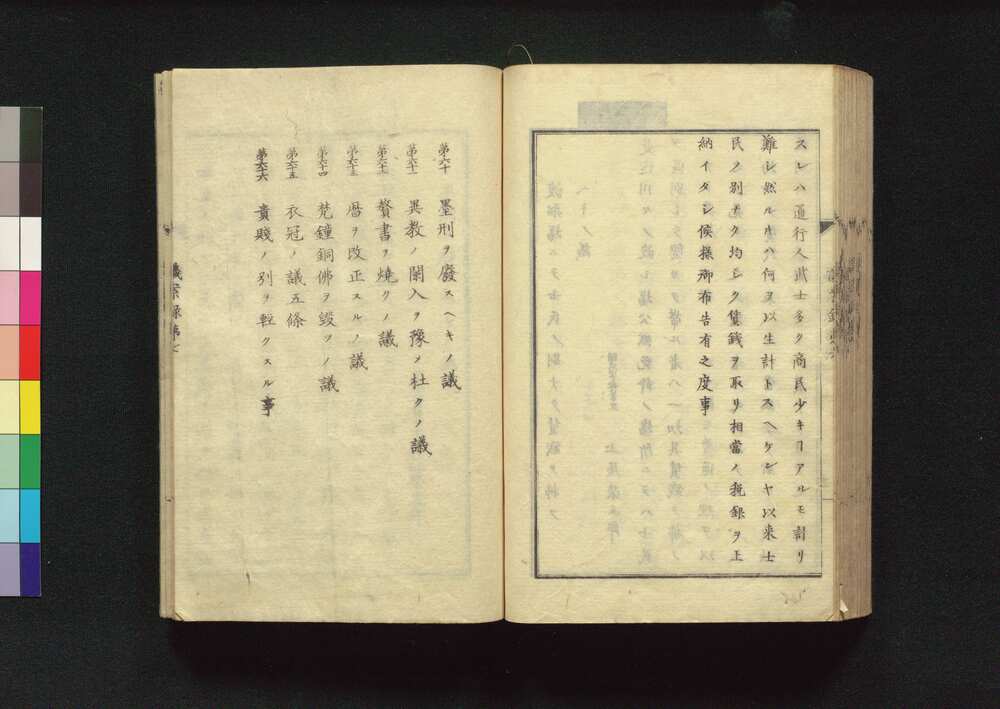 スレハ通行人武士多ク商民少キヿアルモ計リ
難シ然ルハ何ヲ以生計トスヘケンヤ以来士
民ノ別ナク均シク賃銭ヲ取リ相當ノ税録ヲ上
納イタシ候様御布告有之度事
第六十 墨刑ヲ廢スヘキノ議
第六十一 異教ノ闌入ヲ豫メ杜クノ議
第六十二 贅書ヲ燒クノ議
第六十三 暦ヲ改正スルノ議
第六十四 梵鐘銅佛ヲ毀ツノ議
第六十五 衣冠ノ議五條
第六十六 貴賤ノ別ヲ輕クスル事
議案録第七